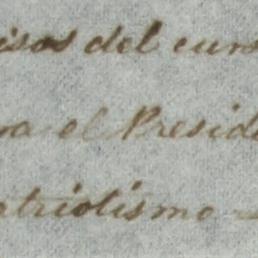 isos del cum
ra el Presid
atriotismo